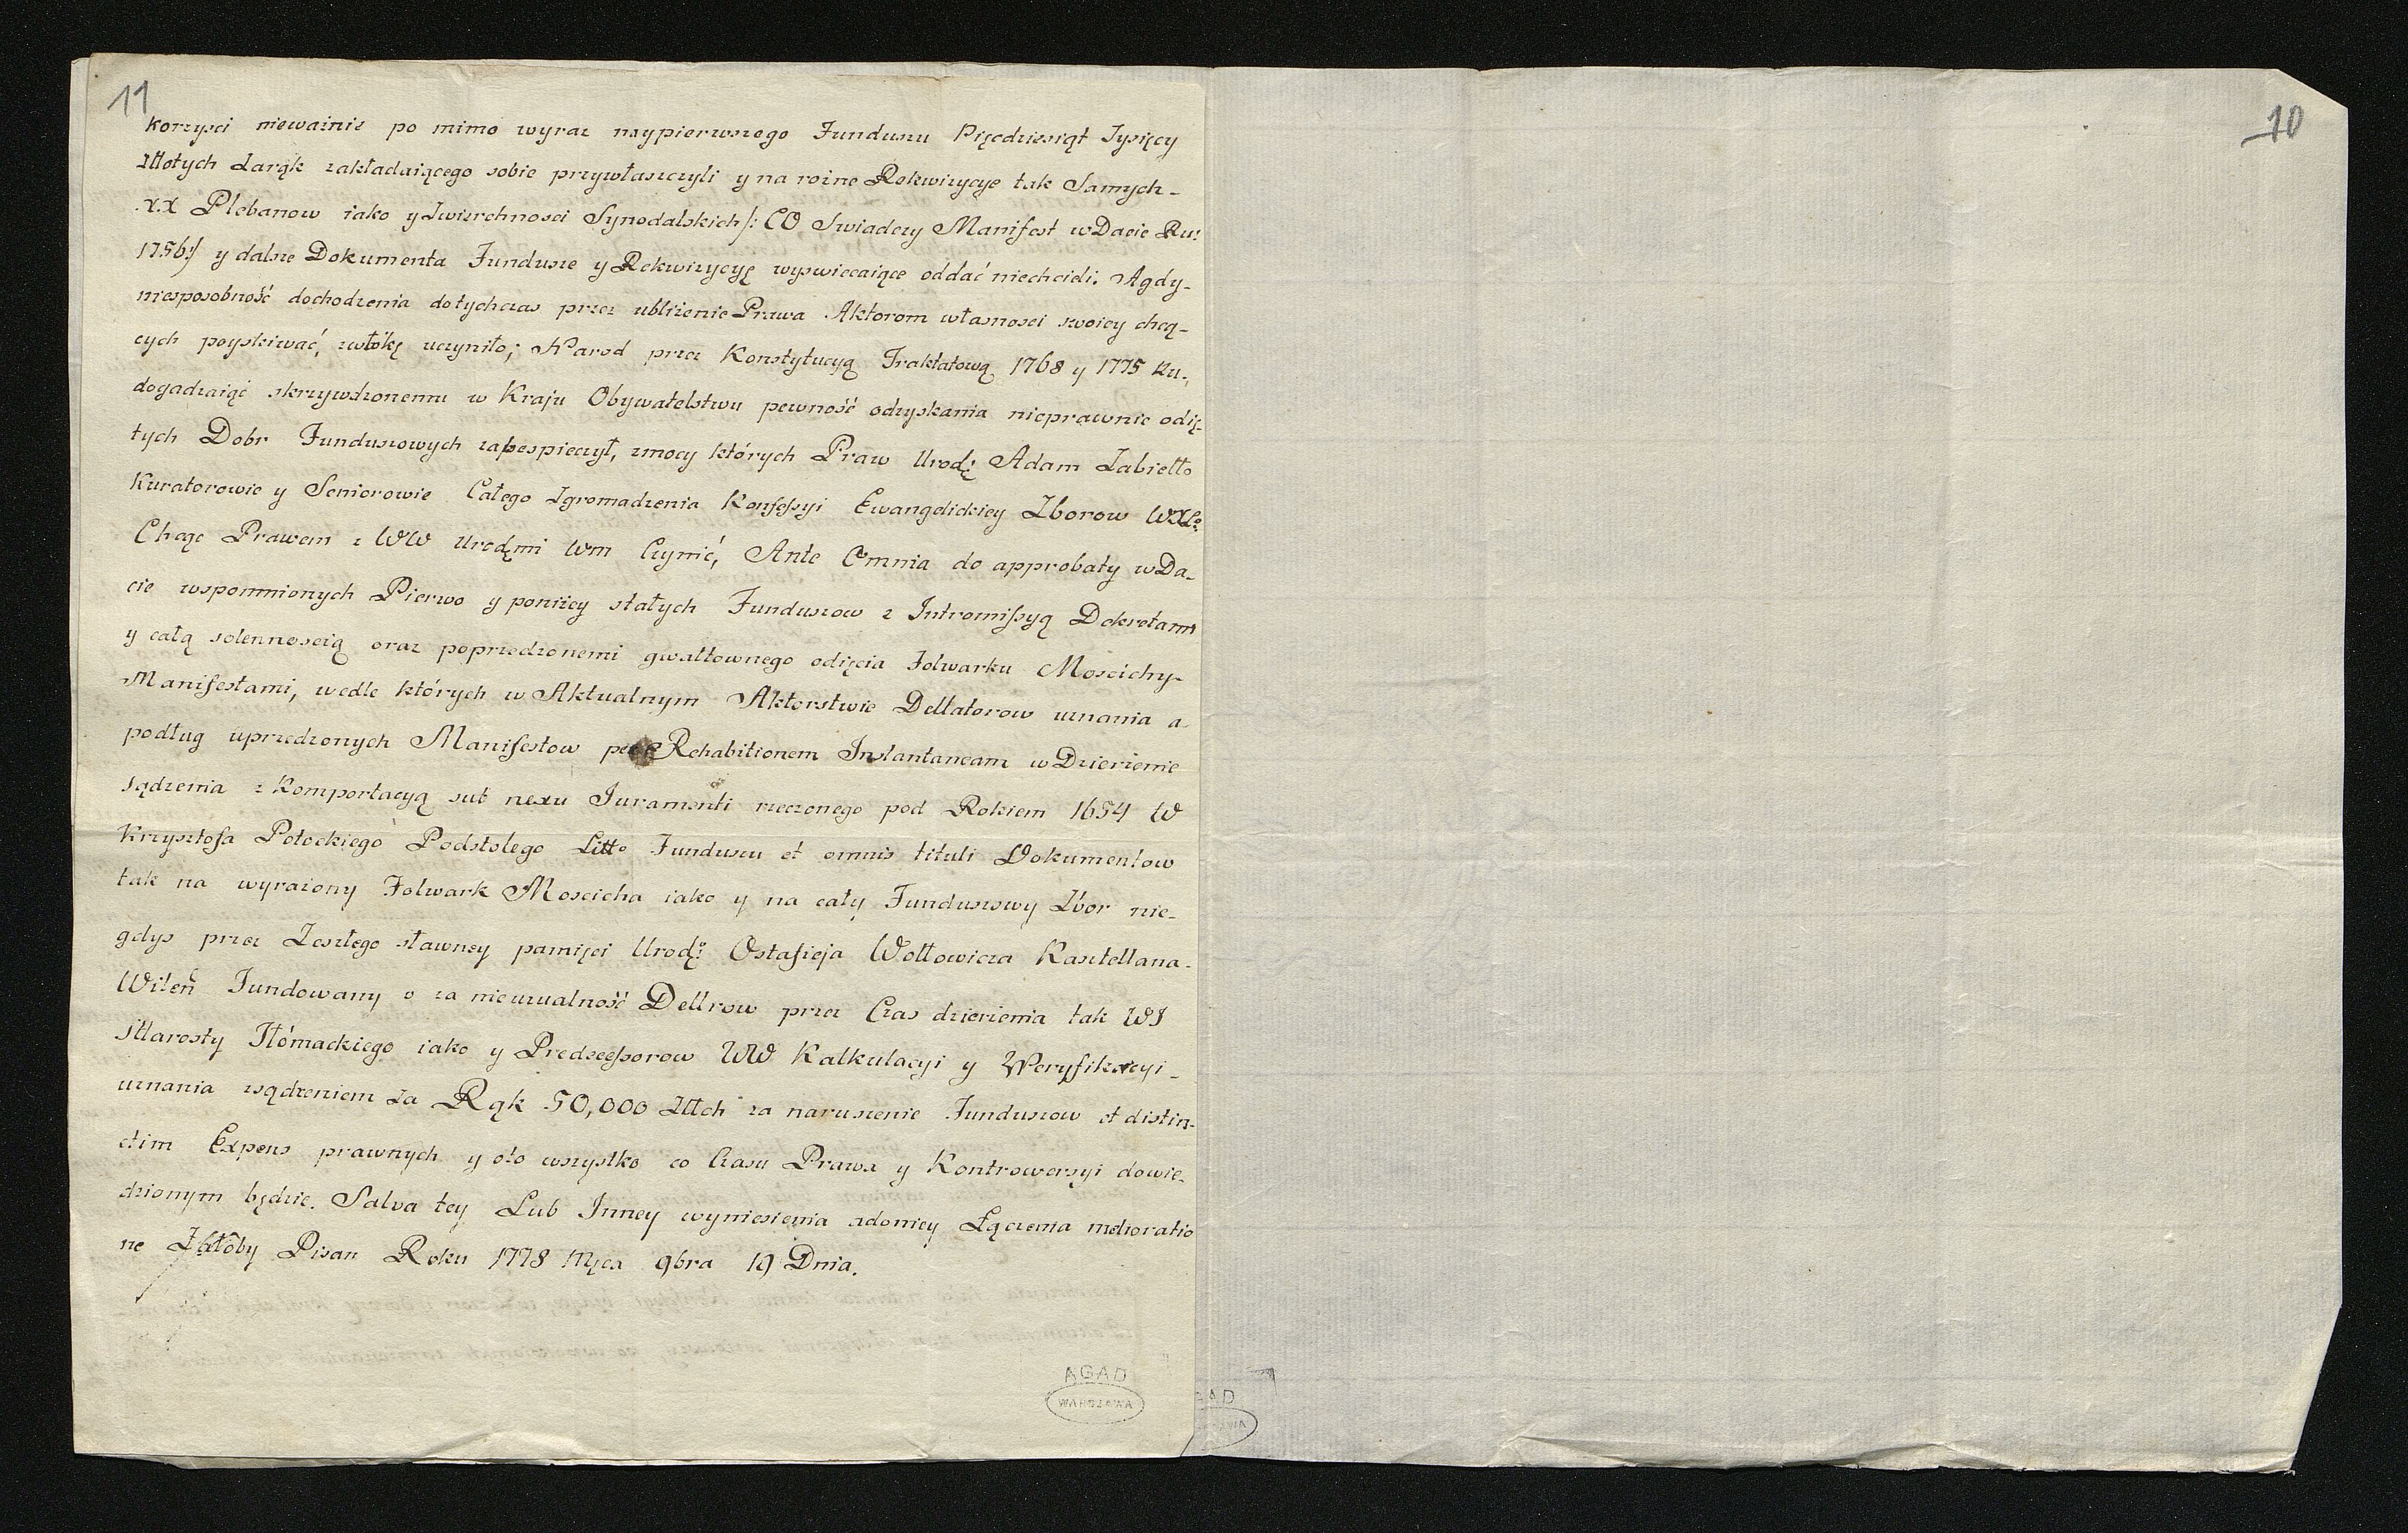 11
korzysci niewaznie po mimo wyraz naypierwszego Funduszu Pięcdziesiąt Tysięcy
Złłotych Zaręk zakładaiącego sobie przywłaszczyli y na rozne Rekwizycye tak Samych-
X.X Plebanow iako y Zwierchnosci Synodalskich/: CO Swiadczy Manifest w Dacie Ru:
1756:/ y dalsze Dokumenta Fundusze y Rekwizycyę wyswiecaiące oddać niechcieli. A gdy-
niesposobność dochodzenia dotychczas przez ubliżenie Prawa Aktorom własnosci swoiey chcą-
cych poyskiwać, zwłokę uczyniło; Narod przez Konstytucyą Traktatową 1768 y 1775 Ru.
dogadzaiąc skrzywdzonemu w Kraju Obywatelstwu pewność odzyskania nieprawnie odię-
tych Dobr Funduszowych zabespieczył, zmocy których Praw Urodz: Adam Zabiełło
Kuratorowie y Seniorowie Całego Zgromadzenia Konfessyi Ewangelickiey Zborow WXLo
Chcąc Prawem z WW Urodzmi Wm Czynić, Ante Omnia do approbaty w Da-
cie wspomnionych Pierwo y poniżey stałych Funduszow z Intromissyą Dekretami
y całą solennoscią oraz poprzedzonemi gwałtownego odięcia Folwarku Moscichy-
Manifestami, wedle których w Aktualnym Aktorstwie Dellatorow uznania a-
podług uprzedzonych Manifestow Rehabitionem Instantaneam w Dzierżenie
sądzenia z Komportacyą sub nexu Juramenti rzeczonego pod Rokiem 1654 W
Krzysztofa Potockiego Podstolego Litto Funduszu et omnis tituli Dokumentow
tak na wyrażony Folwark Moscicha iako y na cały Funduszowy Zbor nie-
gdys przez Zeszłego sławney pamięci Urodz: Ostafieja Wołłowicza Kasztellana-
Wileń Fundowany o za nieuzualność Dellrow przez Czas dzierzenia tak WJ
Starosty Tłómackiego iako y Predecessorow WW Kalkulacyi y Weryfikacyi-
uznania wsądzeniem Za Ręk 50,000 Złłch za naruszenie Funduszow et distin-
ctim Expens prawnych y oto wszystko co Czasu Prawa y Kontrowersyi dowie-
dzionym będzie. Salva tey Lub Inney wyniesienia zdoniey Łączenia melioratio
ne Żałłoby Pisan Roku 1778 Mięca 9bra 19 Dnia.
AGAD
WARSZAWA
10